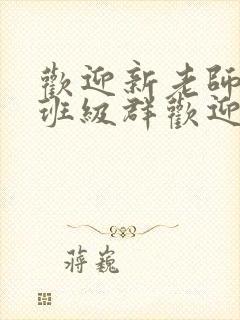 歡迎新老師
班級群歡迎
蔣巍